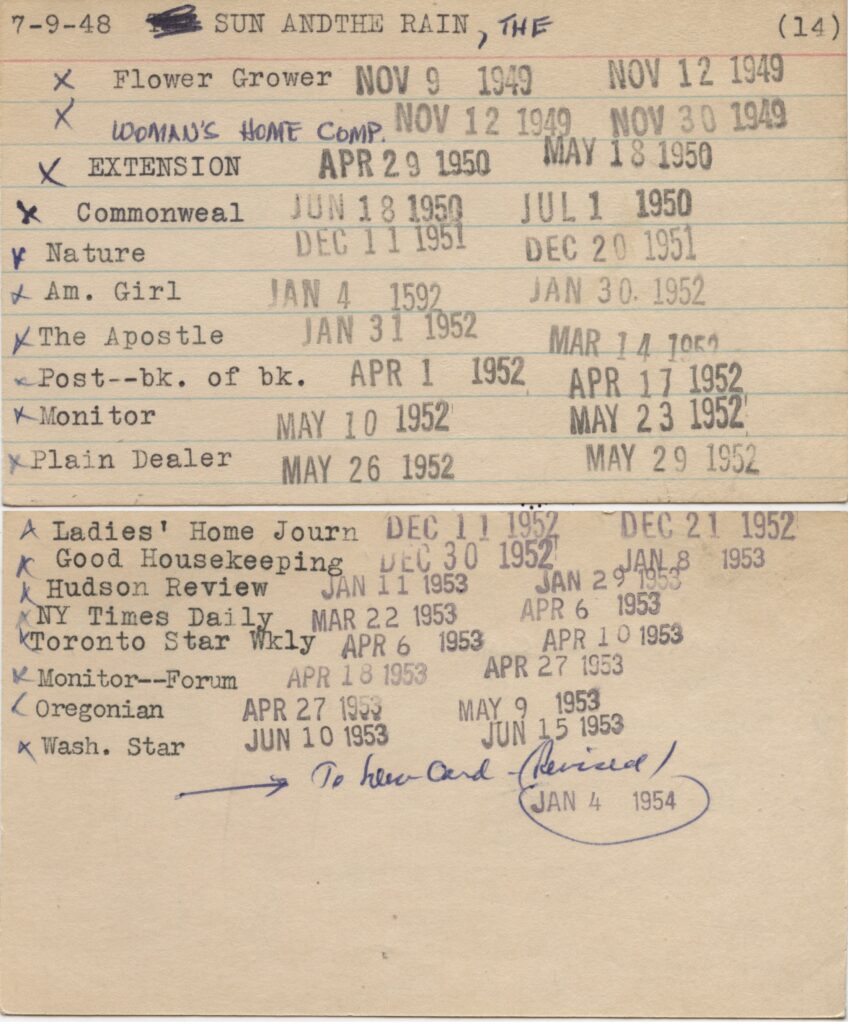 7-9-48 SUN ANDTHE RAIN, THE (14)
x Flower Grower NOV 9 1949 NOV 12 1949
x WOMAN'S HOME COMP. NOV 12 1949 NOV 30 1949
x EXTENSION APR 29 1950 MAY 18 1950
x Commonweal JUN 18 1950 JUL 1 1950
x Nature DEC 11 1951 DEC 20 1951
x Am. Girl JAN 4 1592 JAN 30. 1952
x The Apostle JAN 31 1952 MAR 14 1952
x Post--bk. of bk. APR 1 1952 APR 17 1952
x Monitor MAY 10 1952 MAY 23 1952
x Plain Dealer MAY 26 1952 MAY 29 1952
x Ladies' Home Journ DEC 11 1952 DEC 21 1952
x Good Housekeeping DEC 30 1952 JAN 8 1953
x Hudson Review JAN 11 1953 JAN 29 1953
x NY Times Daily MAR 22 1953 APR 6 1953
x Toronto Star Wkly APR 6 1953 APR 10 1953
x Monitor--Forum APR 18 1953 APR 27 1953
x Oregonian APR 27 1953 MAY 9 1953
x Wash. Star JUN 10 1953 JUN 15 1953
→ To New Card - (Revised)
JAN 4 1954